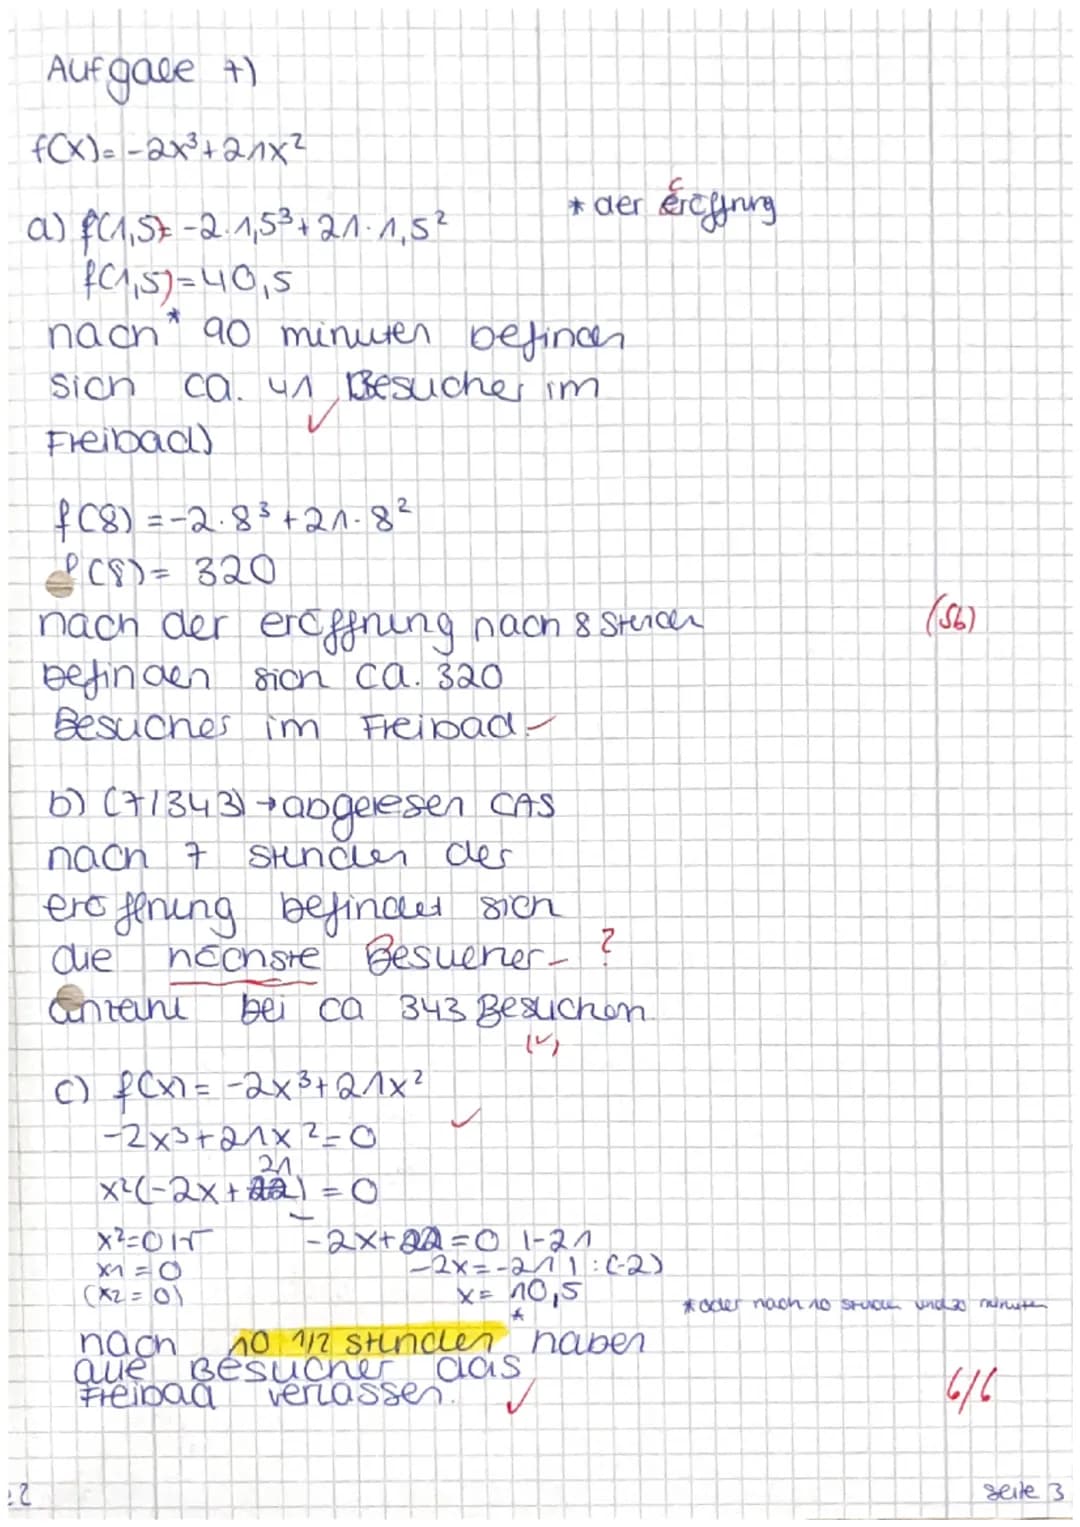 Aufgabe 7)
f(x)= -2x³+21x²
* der eröffnung
a) f(1,5)= -2·1,5³+21·1,5²
f(1,5)=40,5
nach* 90 minuten befinden
sich ca. 41 Besucher im
Freibad)
f(8) =-2·8³+21·8²
f(8)= 320
nach der eröffnung nach 8 stunden
(Sb)
befinden sich ca. 320
Besucher im Freibad.
b) (7/343)→abgelesen CAS
nach 7 stunden der
eröffnung befindet sich
die nöchste Besucher- ?
anzahl bei ca 343 Besuchen
(✓)
c) f(x)= -2x³+21x²
-2x³+21x²=0
x²(-2x+21)=0
x²=0 |√ -2x+22=0 |-21
x1=0 -2x=-21 | :(-2)
(x2=0) x= 10,5
* oder nach 10 stunden und 30 minuten
nach 10 1/2 stunden * haben
alle Besucher das
Freibad verlassen.
6/6
2
seite 3